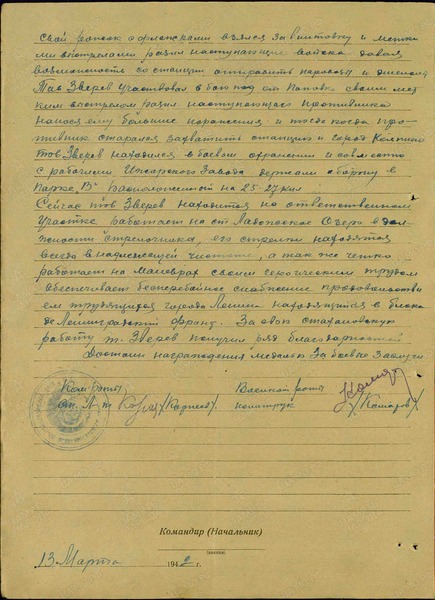 свой рожок с флажками взялся за винтовку и метки
ми выстрелами разил наступающие войска давая
возможность со станции отправить паровозы и эшелоны
Тов Зверев участвовал в бою под ст Поповк своим мет
ким выстрелом разил наступающего противника
нанося ему большие поражения и тогда когда про-
тивник старался захватить станцию и город Колпино
тов Зверев находился в боевом охранении и совместно
с рабочими Ижорского Завода держали оборону в
Парке, расположенной на 25-27 км
Сейчас тов Зверев находится на ответственном
участке работает на ст Ладожское Озеро в дол
жности стрелочника, его стрелки находятся
всегда в надлежащей чистоте, а так же четко
работает на маневрах своим героическим трудом
обеспечивает бесперебойное снабжение продовольстви
ем трудящихся города Ленина находящийся в блока
де Ленинградский фронт. За свою стахановскую
работу т. Зверев получил ряд благодарностей
Достоин награждения медалью За боевые Заслуги
Ком роты Военком роты
Л-т /Карпеев/. политрук /Комаров/
Командир (Начальник)
13 Марта 1942 г.